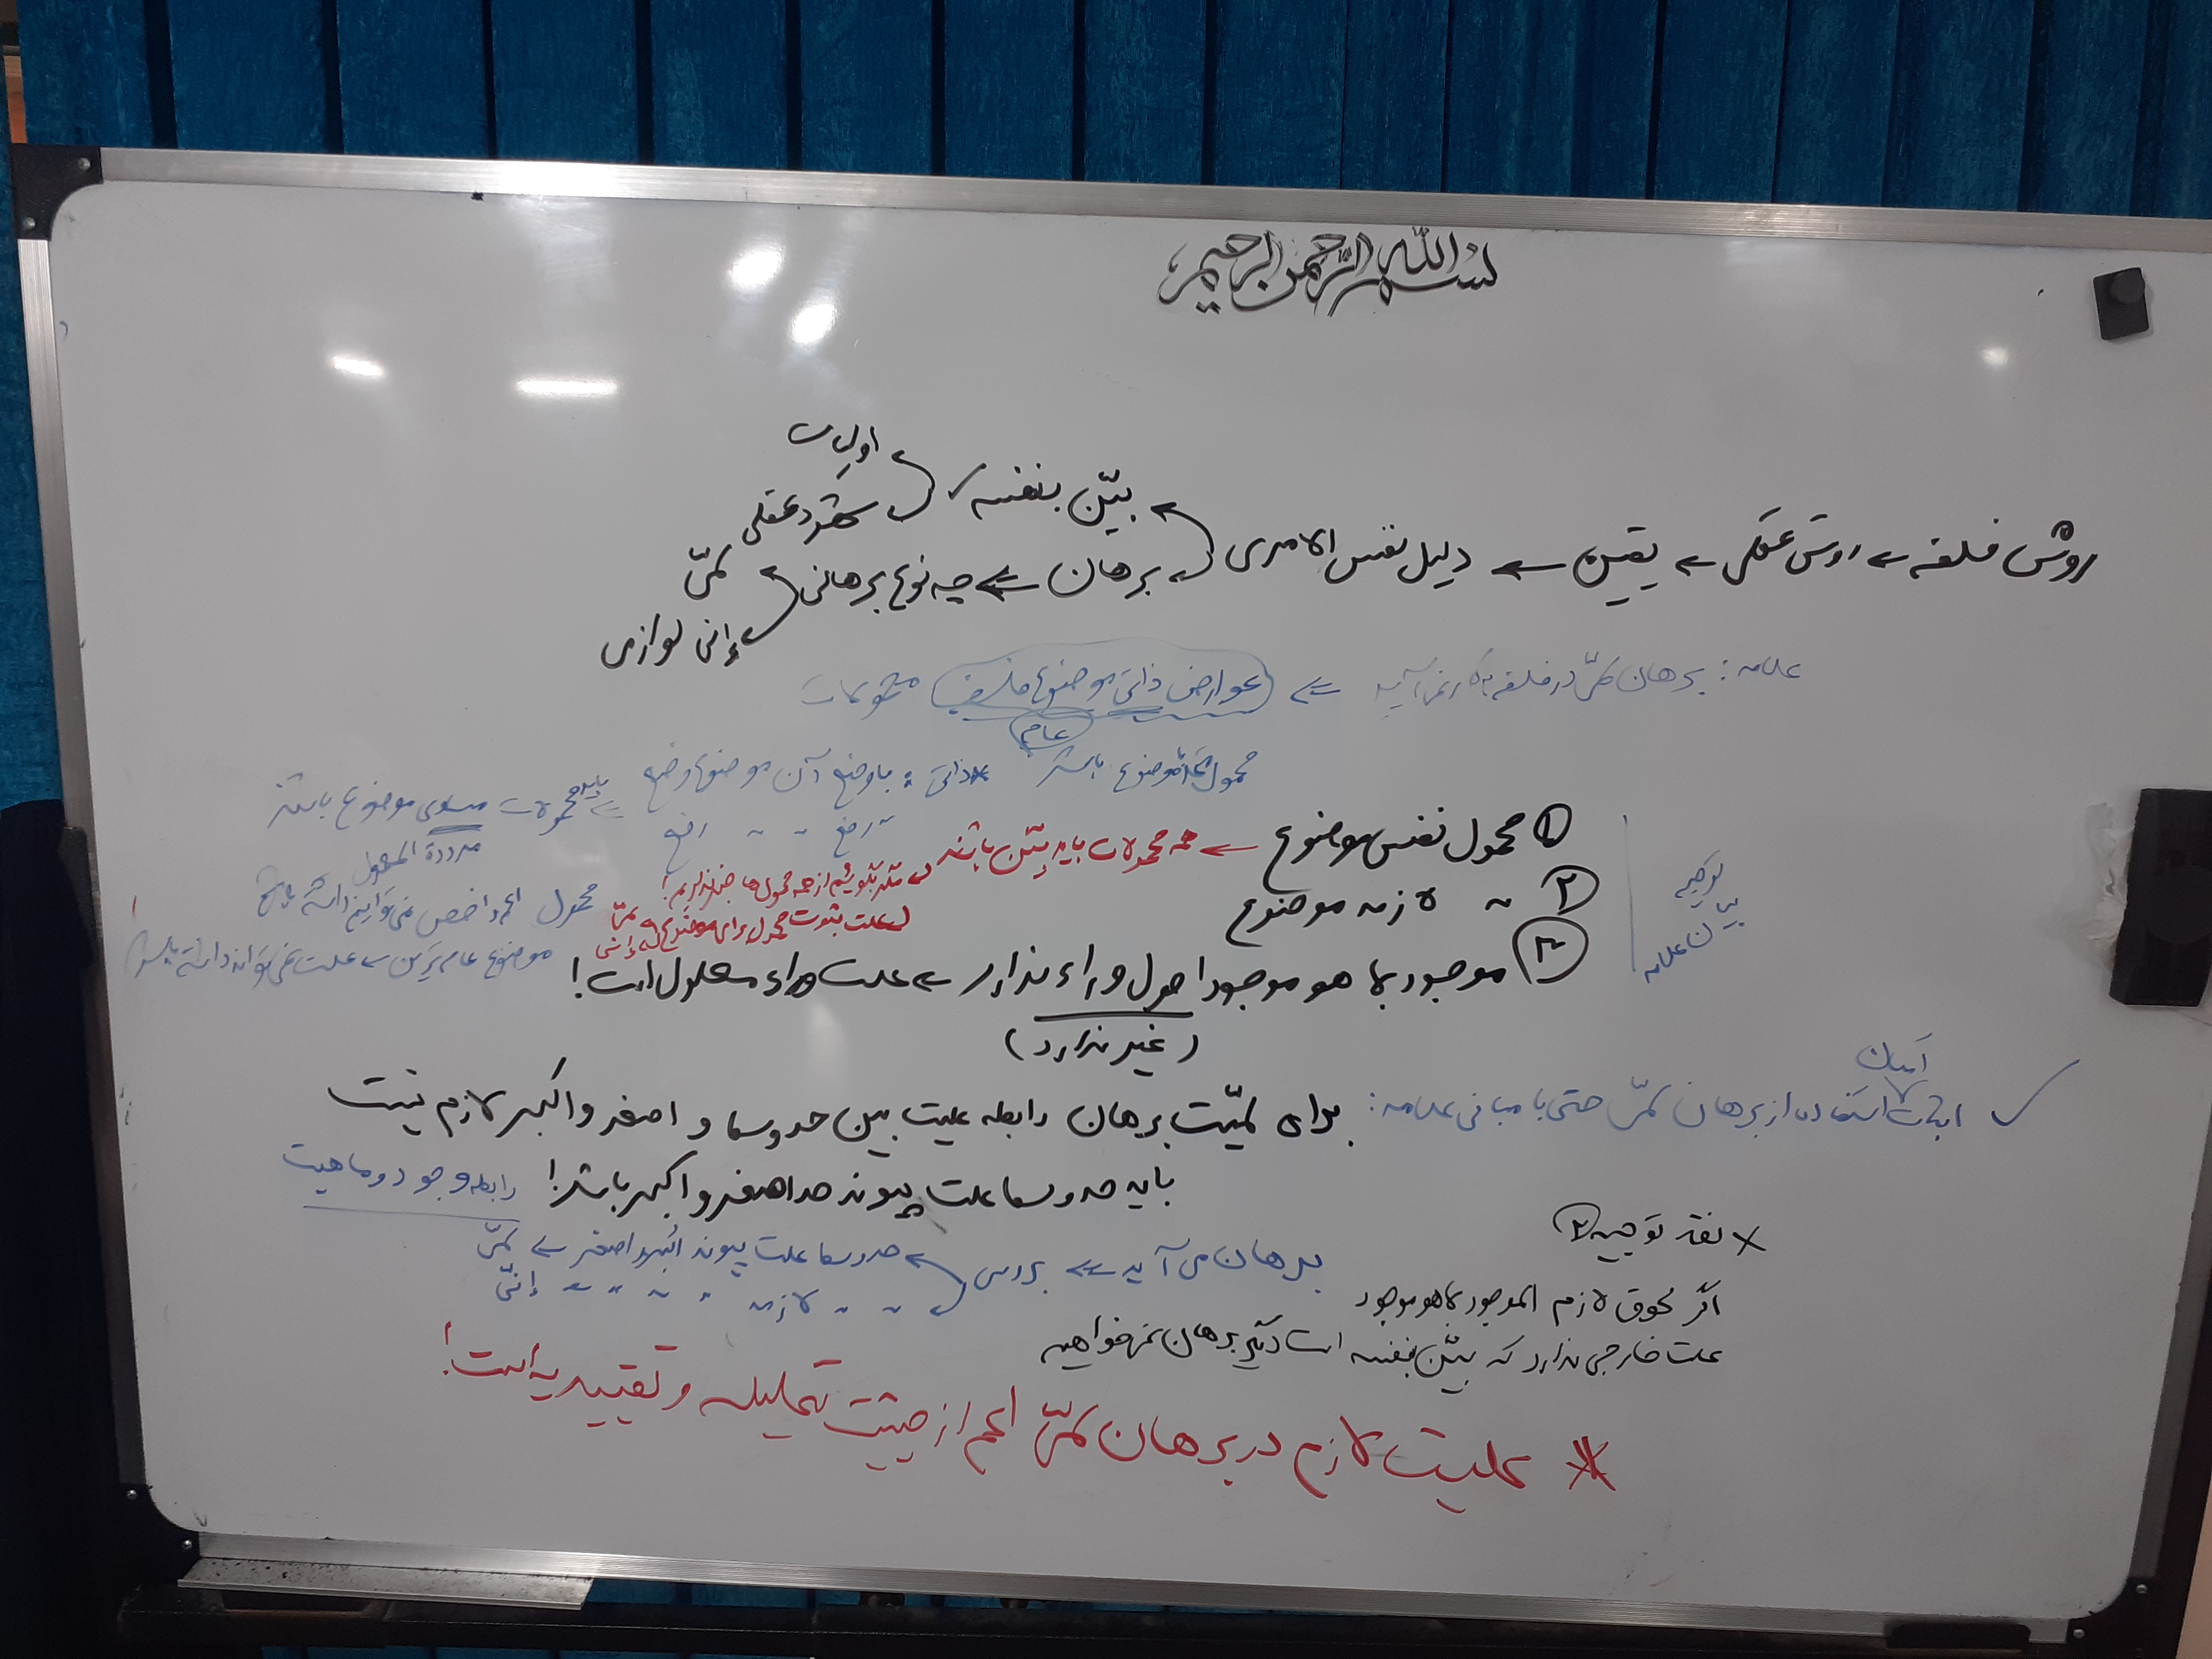 بسم الله الرحمن الرحیم
اولیات
روش فلسفه ← روش عقلی ← یقین ← دلیل نفس الامری
بیّن بنفسه ✓
شهود عقلی
برهان ← چه نوع برهانی
لمّی
إنی لوازمی
علامه: برهان لمّی در فلسفه بکار نمی‌آید ⇐ (عوارض ذاتی موضوع فلسفی) محمولات
عام
محمول موضوع باشد
*ذاتی: با وضع آن موضوع وضع ⇐ باید محمولات مساوی موضوع باشند
〃 رفع 〃 〃 رفع
مرددة المحمول
محمول اعم و اخص نمی‌توانیم داشته باشیم
موضوع عام‌ترین ← علت نمی‌تواند داشته باشد
توجیه بیان علامه
① محمول نفس موضوع ← همه محمولات باید بیّن باشند
از همه محمول‌ها خبر نداریم!
علت ثبوت محمول برای موضوع لمّی إنی
② 〃 لازمه موضوع
③ موجود بما هو موجود اصول وراء ندارد ← علت وراء معلول است!
(غیر ندارد)
امکان
✓ اثبات استفاده از برهان لمّی حتی با مبانی علامه: برای لمّیت برهان رابطه علیت بین حد وسط و اصغر و اکبر لازم نیست
باید حد وسط علت پیوند حد اصغر و اکبر باشد! رابطه وجود و ماهیت
× نقد توجیه ②
برهان می‌آید ⇐ بررسی
حد وسط علت پیوند اکبر و اصغر ← لمّی
〃 〃 لازمه 〃 〃 〃 〃 ← إنّی
اگر لحوق لازم الموجود بما هو موجود
علت خارجی ندارد که بیّن بنفسه است دیگر برهان نمی‌خواهیم
* علیت لازم در برهان لمّی اعم از حیثیت تعلیلیه و تقییدیه است!